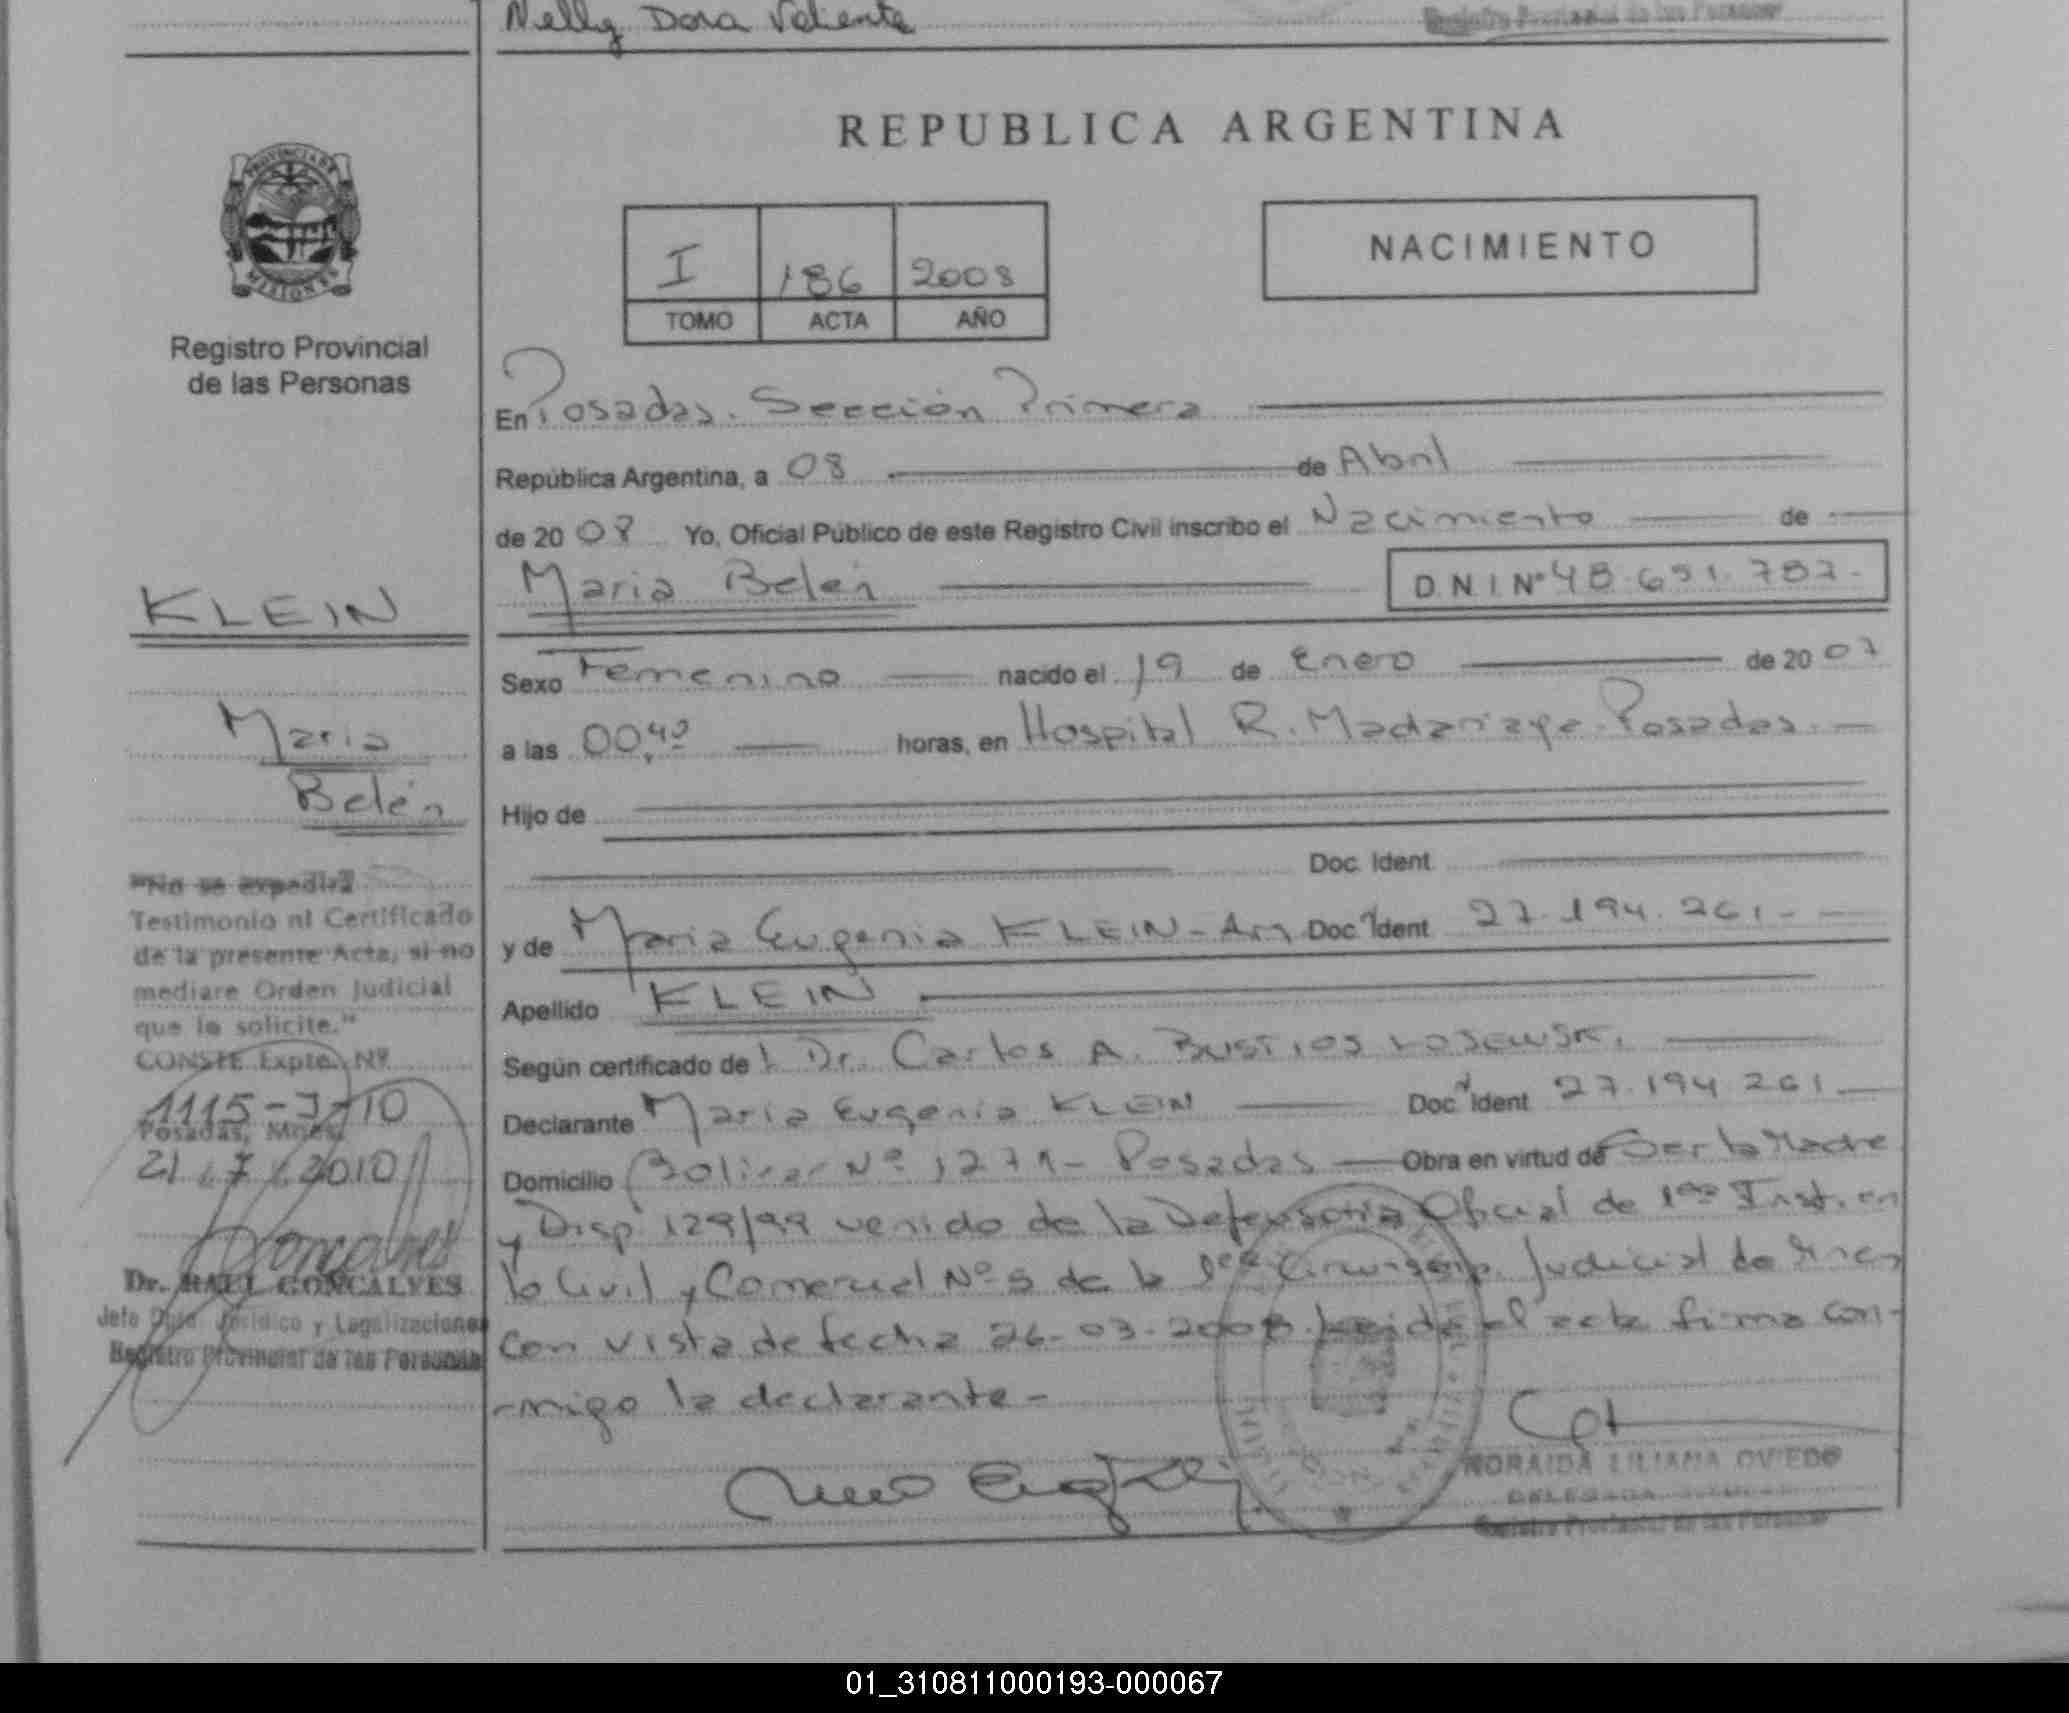 Nelly Dora Valiente
Registro Provincial de las Personas
REPUBLICA ARGENTINA
PROVINCIA DE
MISIONES
Registro Provincial
de las Personas
I 186 2008
TOMO ACTA AÑO
NACIMIENTO
En Posadas. Sección Primera
República Argentina, a 08 de Abril
de 20 08 Yo, Oficial Público de este Registro Civil inscribo el Nacimiento de
Maria Belén D.N.I Nº 48.691.787.-
Sexo Femenino nacido el 19 de Enero de 20 07
a las 00,40 horas, en Hospital R. Madariaga-Posadas.-
Hijo de
Doc. Ident.
y de Maria Eugenia KLEIN-Arg Doc. Ident 27.194.261.-
Apellido KLEIN
Según certificado de l Dr. Carlos A. BUSTIOS
Declarante Maria Eugenia KLEIN Doc. Ident 27.194.261
Domicilio Bolivar Nº 1271- Posadas Obra en virtud de Ser la Madre
y Disp 129/99 venido de la Defensoria Oficial de 1era Inst. en
lo Civil y Comercial Nº 5 de la 1era Judicial de Mnes
con vista de fecha 26-03-2008. Leida el acta firma con-
-migo la declarante-
NORAIDA LILIANA OVIEDO
DELEGADA
Registro Provincial de las Personas
KLEIN
Maria
Belén
"No se expedirá
Testimonio ni Certificado
de la presente Acta, si no
mediare Orden Judicial
que lo solicite."
CONSTE Expte. Nº
1115-J-10
Posadas, Mnes.
21 / 7 / 2010
Dr. RAUL GONCALVES
Jefe Dpto. Jurídico y Legalizaciones
Registro Provincial de las Personas
01_310811000193-000067